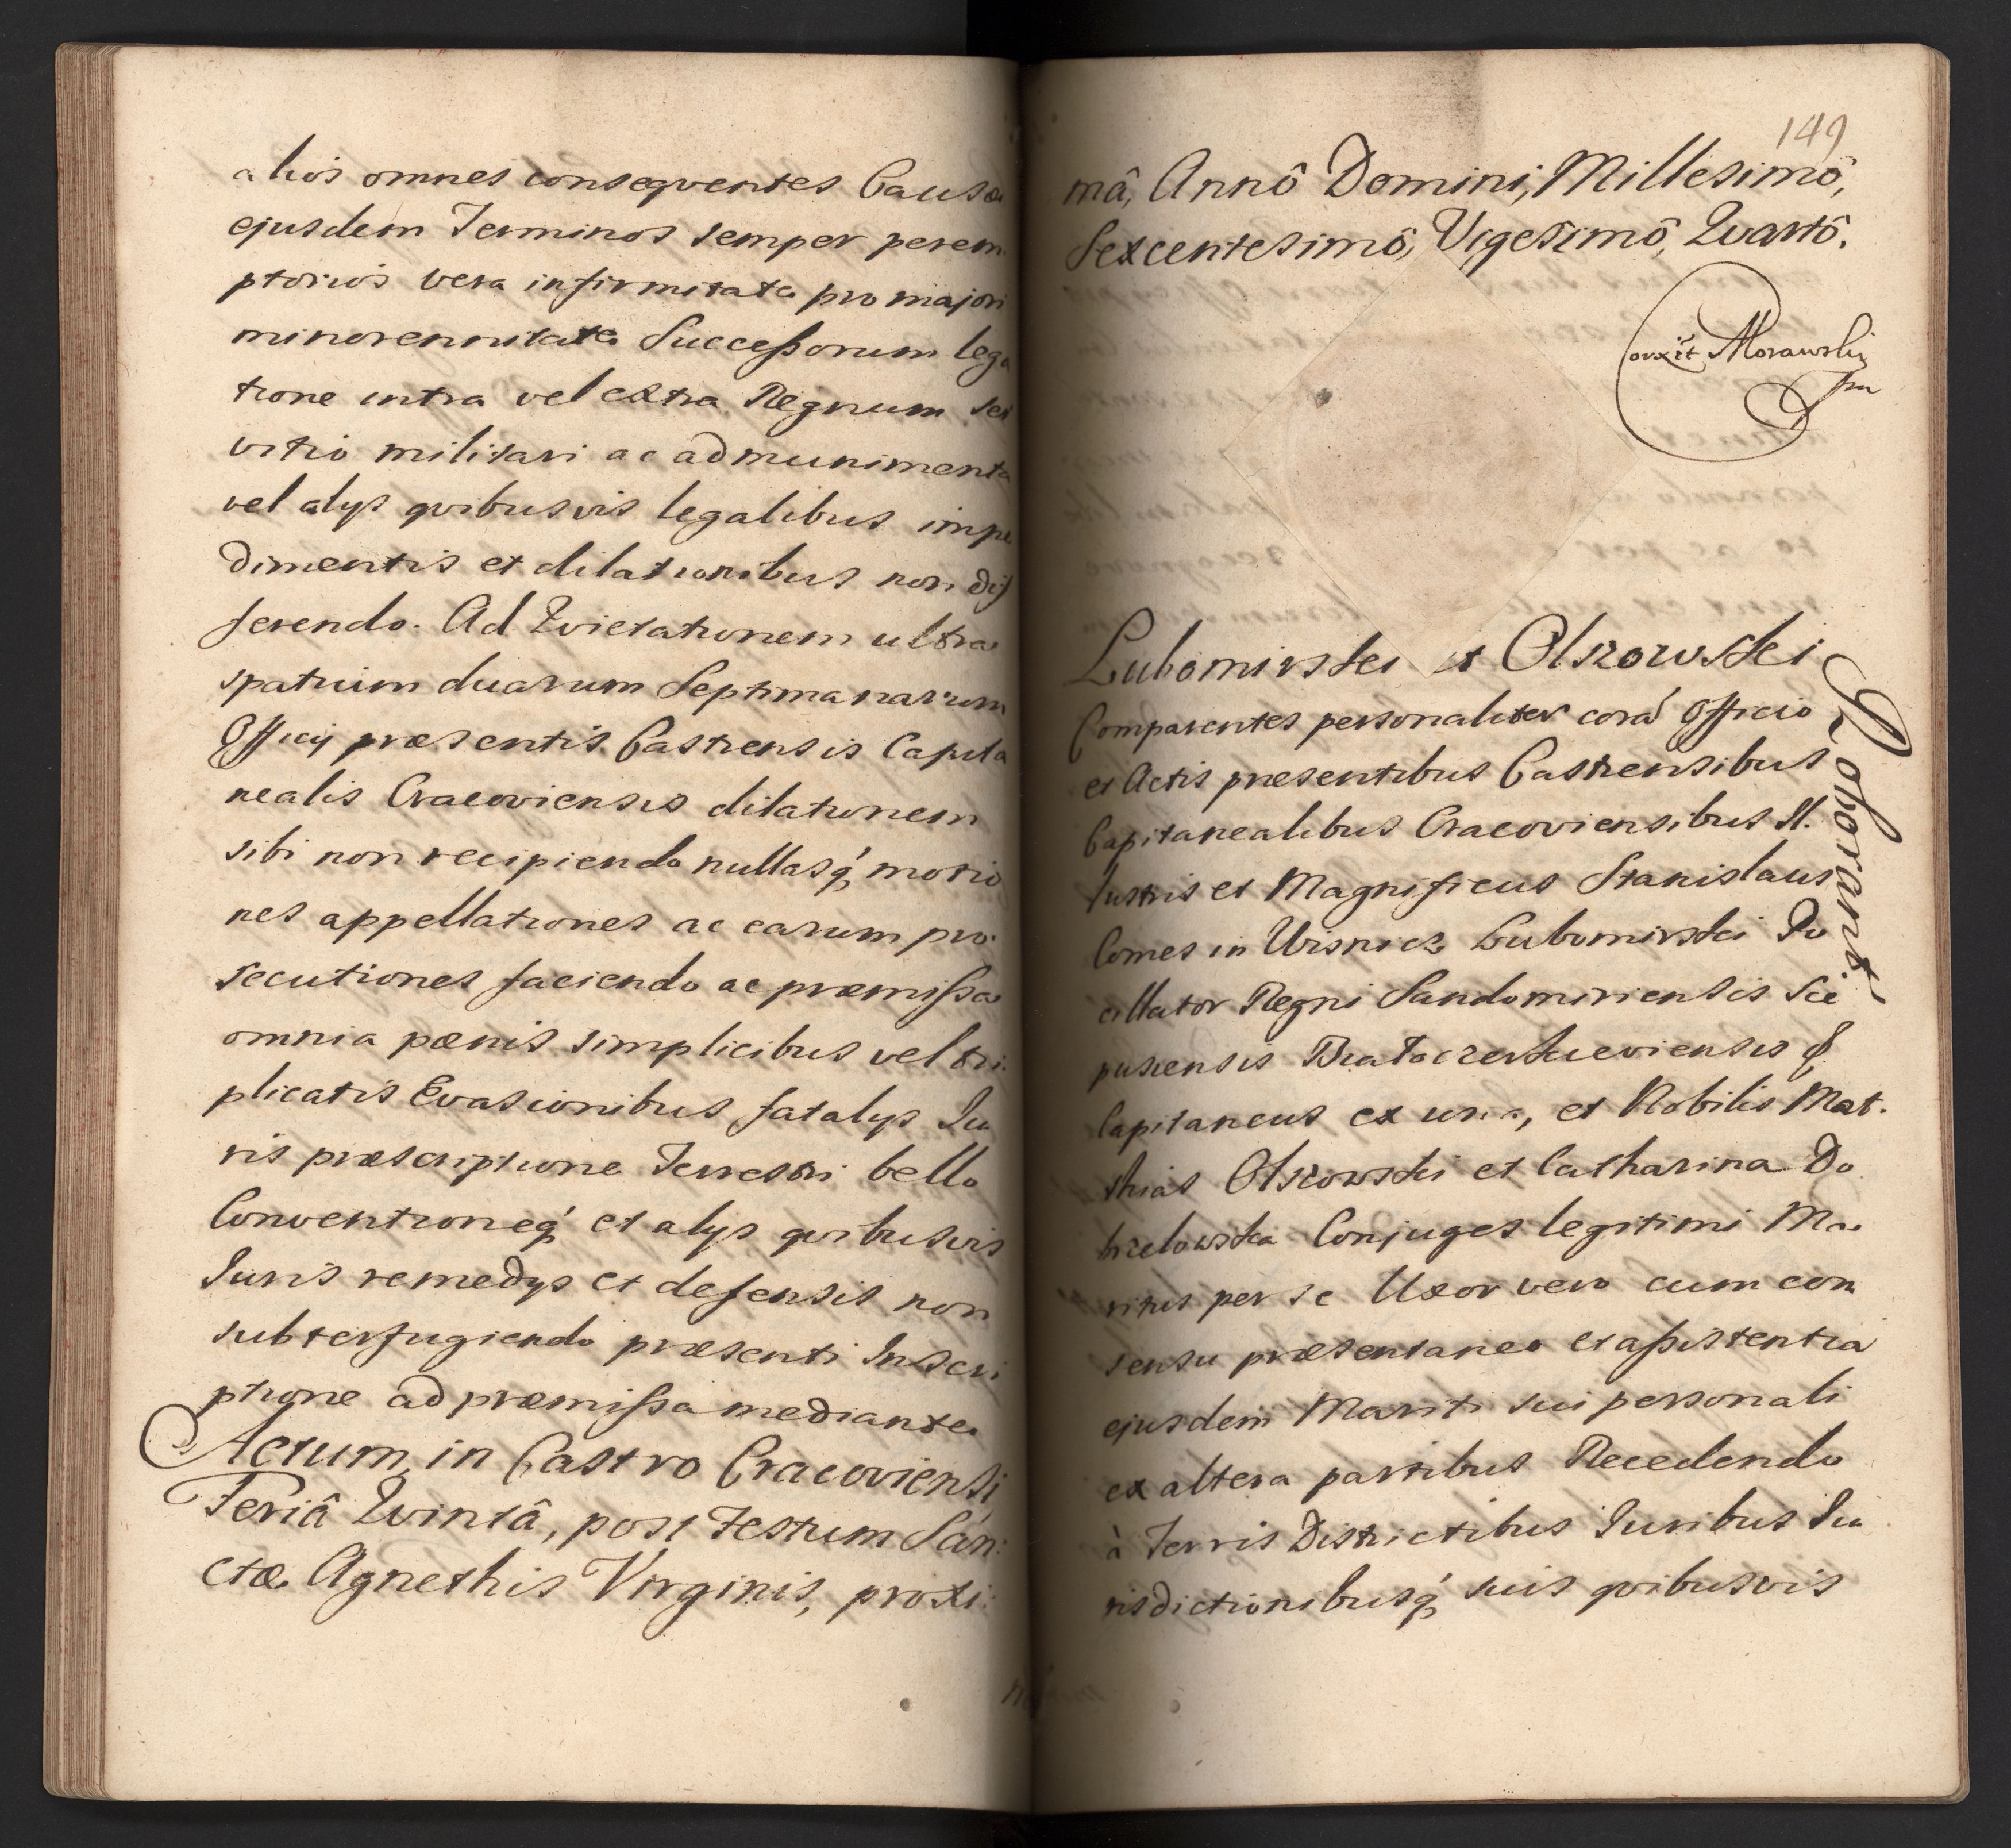 alios omnes conseqventes Causæ
ejusdem Terminos semper perem
ptorios vera infirmitate pro majori
minorennitate Successorum lega
tione intra vel extra Regnum ser
vitio militari ac ad munimenta
vel alys qvibusvis legalibus impe
dimentis et dilationibus non dif
ferendo. Ad Qvietationem ultra
spatium duarum Septimanarum
Officy præsentis Castrensis Capita
nealis Cracoviensis dilationem
sibi non recipiendo nullasq́ motio
nes appellationes ac earum pro
secutiones faciendo ac præmissa
omnia pœnis simplicibus vel tri
plicatis Evasionibus fatalys Ju
ris præscriptione Terrestri bello
Conventioneq́ et alys qvibusvis
Juris remedys et defensis non
subterfugiendo præsenti Inscri
ptione ad præmissa mediante
Actum, in Castro Cracoviensi
Feriâ Qvintâ, post Festum San:
ctæ Agnethis Virginis, proxi:
149
mâ, Annô Domini, Millesimô,
Sexcentesimô, Vigesimô, Qvartô.
Corxit Morawski
mp
Lubomirski et Olszowski
Roborant
Comparentes personaliter corá Officio
et Actis præsentibus Castrensibus
Capitanealibus Cracoviensibus Il.
lustris et Magnificus Stanislaus
Comes in Wisnicz Lubomirski Po
cillator Regni Sandomiriensis Sce
pusiensis Biatocerkieviensis &
Capitaneus ex una, et Nobilis Mat.
thias Olszowski et Catharina Do
brzelowska Conjuges legitimi Ma
ritus per se Uxor vero cum con
sensu præsentaneo et assistentia
ejusdem Mariti sui personali
ex altera partibus Recedendo
à Terris Districtibus Juribus Ju
risdictionibusq́ suis qvibusvis